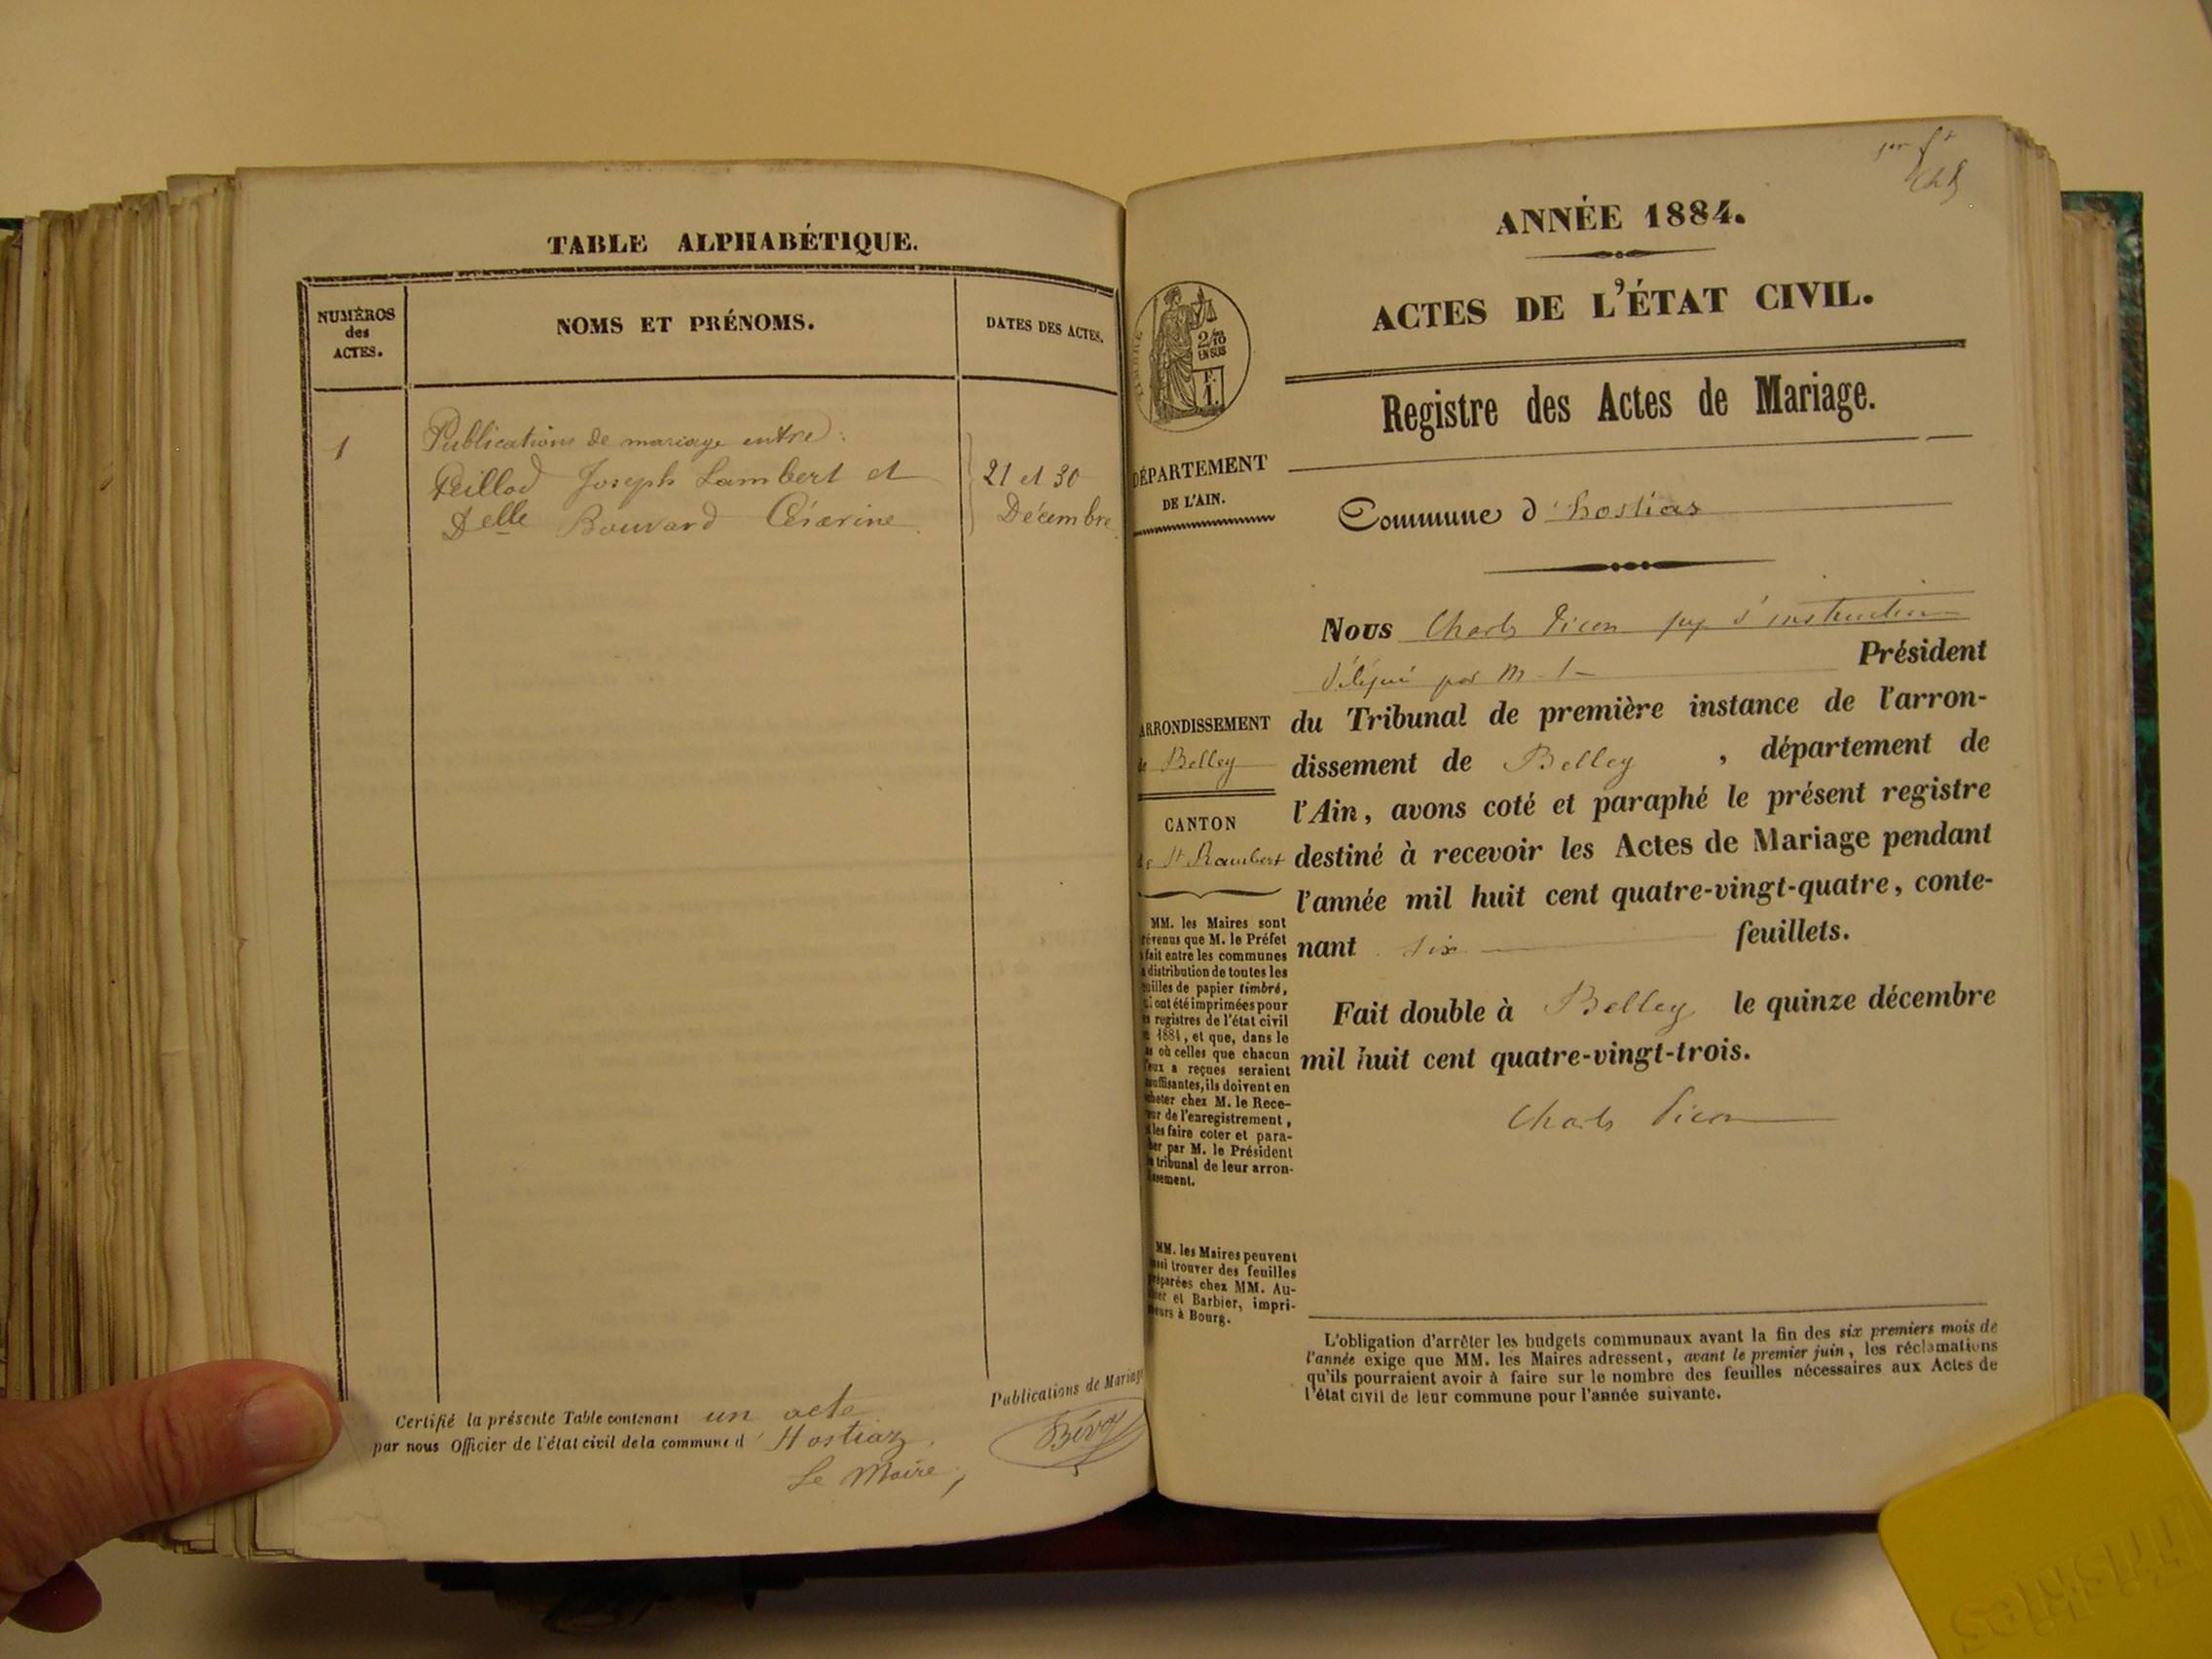 TABLE ALPHABÉTIQUE.
NUMÉROS
des
ACTES.
NOMS ET PRÉNOMS.
DATES DES ACTES.
1
Publications de mariage entre :
Peillod Joseph Lambert et
Delle Bouvard Césarine
21 et 30
Décembre
Certifié la présente Table contenant un acte
par nous Officier de l'état civil de la commune d'Hostiaz.
Le Maire,
Publications de Mariage
ANNÉE 1884.
ACTES DE L'ÉTAT CIVIL.
Registre des Actes de Mariage.
TIMBRE
2/10
EN SUS
F.
1.
DÉPARTEMENT
DE L'AIN.
Commune d'hostias
Nous Charles Picon juge d'instruction
délégué par M. le Président
du Tribunal de première instance de l'arron-
dissement de Belley, département de
l'Ain, avons coté et paraphé le présent registre
destiné à recevoir les Actes de Mariage pendant
l'année mil huit cent quatre-vingt-quatre, conte-
nant six feuillets.
Fait double à Belley le quinze décembre
mil huit cent quatre-vingt-trois.
Charles Picon
ARRONDISSEMENT
de Belley
CANTON
de St Rambert
MM. les Maires sont
que M. le Préfet
fait entre les communes
distribution de toutes les
de papier timbré,
ont été imprimées pour
registres de l'état civil
1884, et que, dans le
où celles que chacun
a reçues seraient
ils doivent en
chez M. le Rece-
de l'enregistrement,
les faire coter et para-
par M. le Président
tribunal de leur arron-
MM. les Maires peuvent
trouver des feuilles
chez MM. Au-
et Barbier, impri-
à Bourg.
L'obligation d'arrêter les budgets communaux avant la fin des six premiers mois de
l'année exige que MM. les Maires adressent, avant le premier juin, les réclamations
qu'ils pourraient avoir à faire sur le nombre des feuilles nécessaires aux Actes de
l'état civil de leur commune pour l'année suivante.